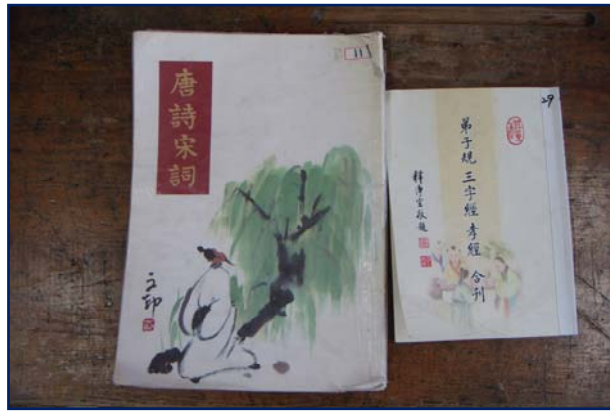 唐詩宋詞
11
29
弟子規 三字經 孝經 合刊
釋淨空敬題